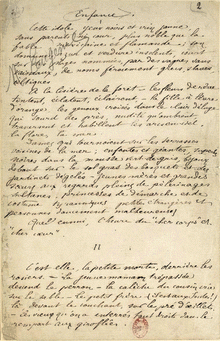 2
Enfance.
I
Cette idole, yeux noirs et crin jaune,
sans parents ni cour, plus noble que la
fable, mexicaine et flamande : son
domaine, azur et verdure insolents, court
sur des plages nommées, par des vagues sans
vaisseaux, de noms férocement grecs, slaves,
celtiques
À la lisière de la forêt — les fleurs de rêve
tintent, éclatent, éclairent, — la fille à lèvre
d'orange, les genoux croisés dans le clair déluge
qui sourd des prés, nudité qu'ombrent,
traversent et habillent les arcs-en-ciel,
la flore, la mer.
Dames qui tournoient sur les terrasses
voisines de la mer ; enfantes et géantes, superbes
noires dans la mousse vert-de-gris, bijoux
debout sur le sol gras des bosquets et des
jardinets dégelés — jeunes mères et grandes
sœurs aux regards pleins de pèlerinages,
sultanes, princesses de démarche et de
costume tyranniques petites étrangères et
personnes doucement malheureuses.
Quel ennui, l'heure du "cher corps" et
"cher cœur".
II
C'est elle, la petite morte, derrière les
rosiers. — La jeune maman trépassée
descend le perron — La calèche du cousin crie
sur le sable — Le petit frère — (il est aux Indes !)
là, devant le couchant, sur le pré d'œillets.
— Les vieux qu'on a enterrés tout droits dans le
rempart aux giroflées.